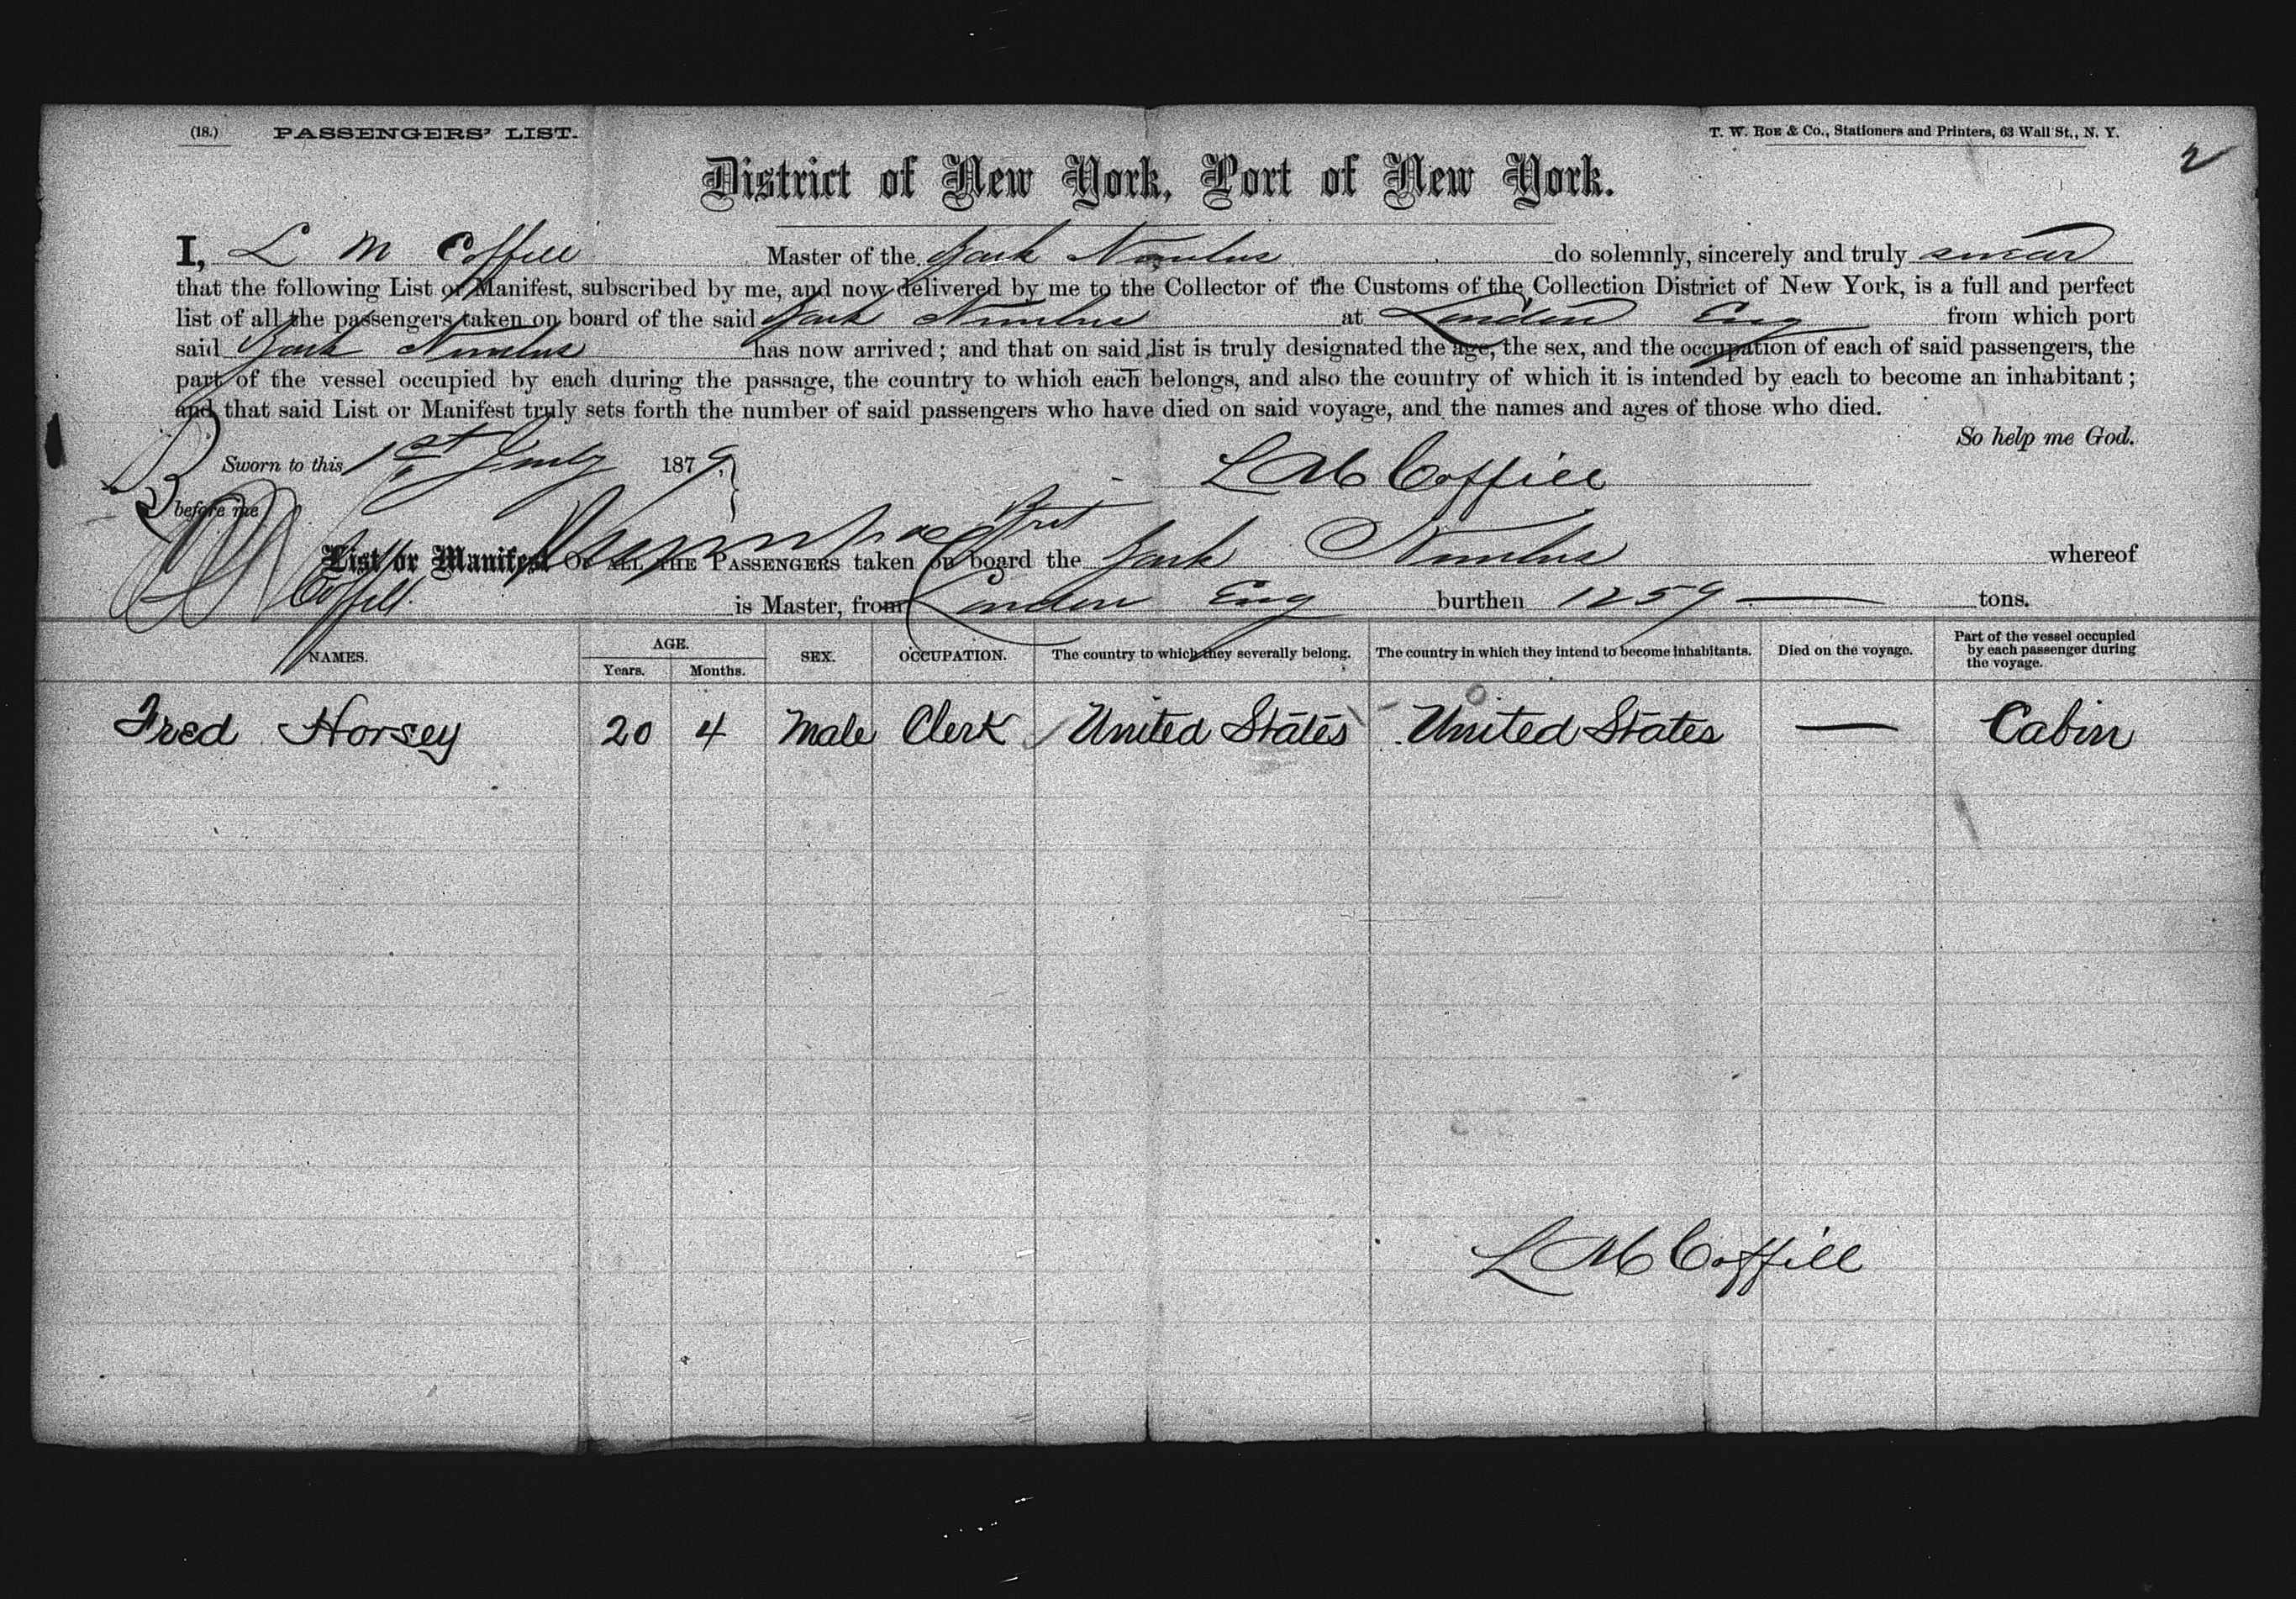 (18.) PASSENGERS' LIST.
T. W. ROE & Co., Stationers and Printers, 63 Wall St., N. Y.
2
District of New York, Port of New York.
I, L M Coffill Master of the Bark Nimbus do solemnly, sincerely and truly swear
that the following List or Manifest, subscribed by me, and now delivered by me to the Collector of the Customs of the Collection District of New York, is a full and perfect
list of all the passengers taken on board of the said Bark Nimbus at London Eng from which port
said Bark Nimbus has now arrived; and that on said list is truly designated the age, the sex, and the occupation of each of said passengers, the
part of the vessel occupied by each during the passage, the country to which each belongs, and also the country of which it is intended by each to become an inhabitant;
and that said List or Manifest truly sets forth the number of said passengers who have died on said voyage, and the names and ages of those who died.
So help me God.
Sworn to this 1st July 1879,
L M Coffill
before me
List or Manifest OF ALL THE PASSENGERS taken on board the Brit Bark Nimbus whereof
Coffill is Master, from London Eng burthen 1259 tons.
NAMES. AGE. Years. Months. SEX. OCCUPATION. The country to which they severally belong. The country in which they intend to become inhabitants. Died on the voyage. Part of the vessel occupied by each passenger during the voyage.
Fred Horsey 20 4 Male Clerk United States United States — Cabin
L M Coffill